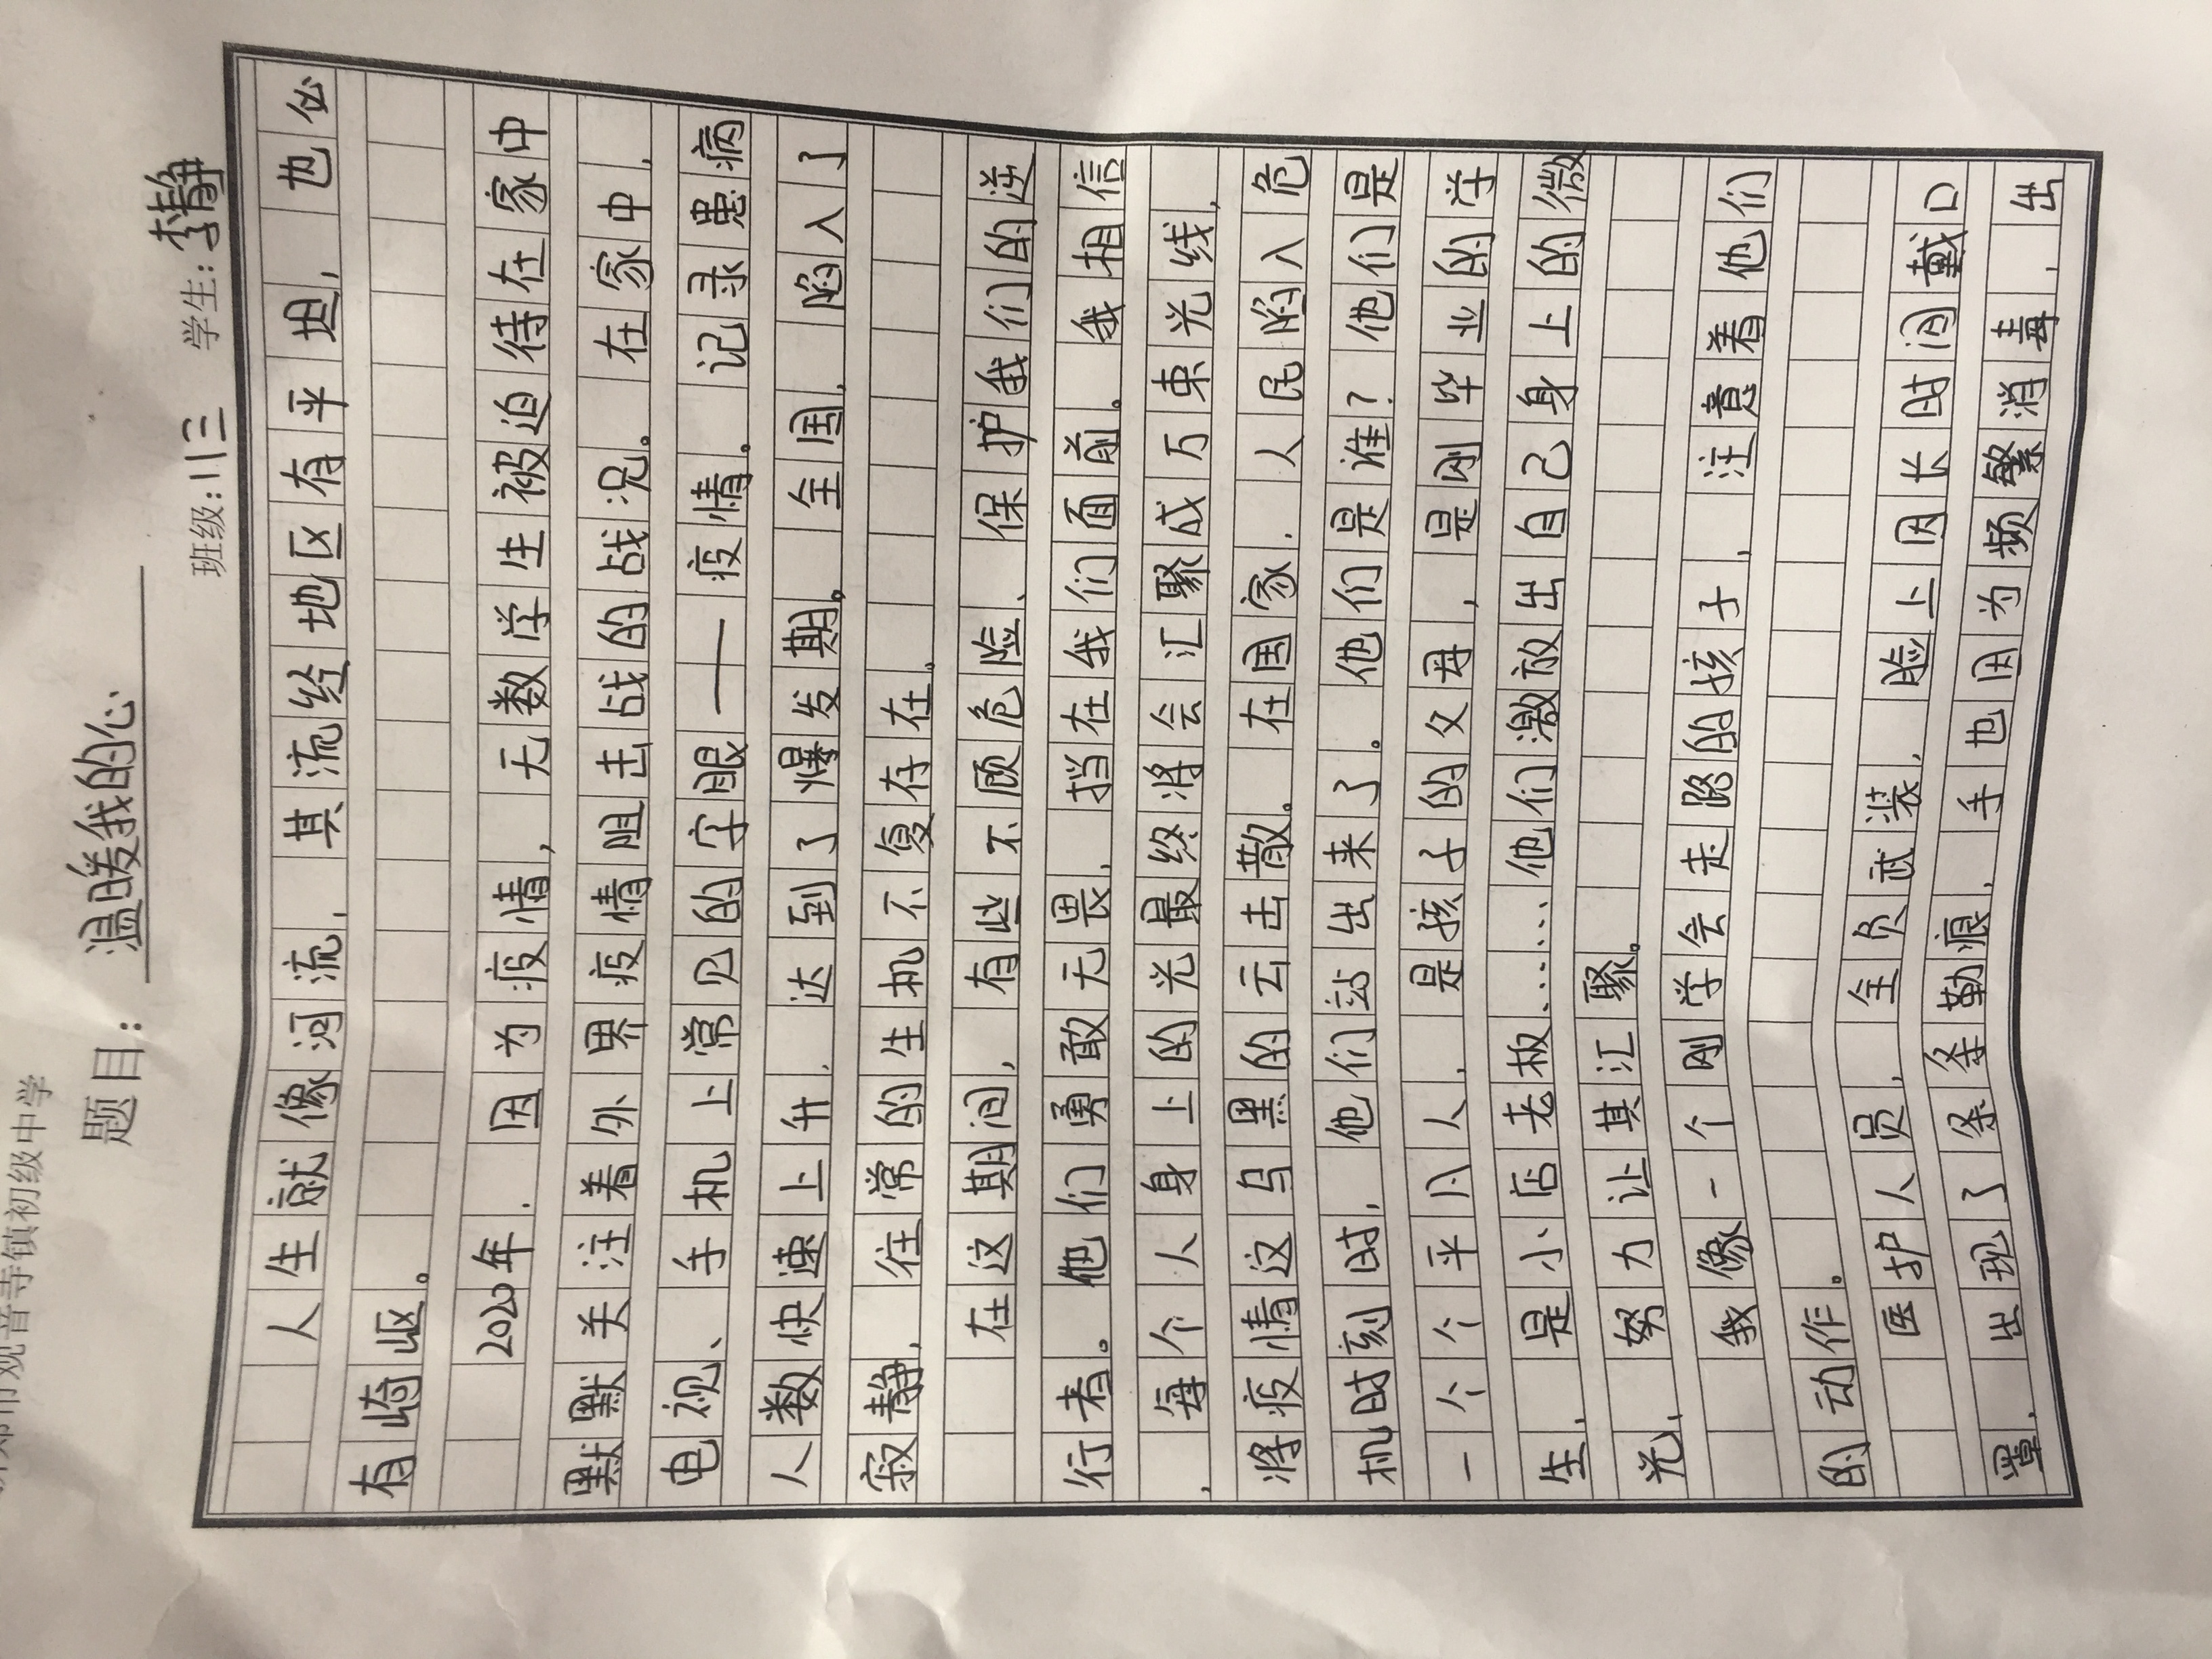 观音寺镇初级中学
题目：温暖我的心
班级：二三 学生：李静
人生就像河流，其流经地区有平坦，也必
有崎岖。
2020年，因为疫情，无数学生被迫待在家中
默默关注着外界疫情阻击战的战况。在家中，
电视、手机上常见的字眼——疫情。记录患病
人数快速上升，达到了爆发期。全国，陷入了
寂静，往常的生机不复存在。
在这期间，有些不顾危险、保护我们的逆
行者。他们勇敢无畏，挡在我们面前。我相信
，每个人身上的光最终将会汇聚成万束光线，
将疫情这乌黑的云击散。在国家，人民陷入危
机时刻时，他们站出来了。他们是谁？他们是
一个个平凡人，是孩子的父母，是刚毕业的学
生，是小店老板……他们激放出自己身上的微
光，努力让其汇聚。
我像一个刚学会走路的孩子，注意着他们
的动作。
医护人员，全员武装，脸上因长时间戴口
罩，出现了条条勒痕，手也因为频繁消毒，出